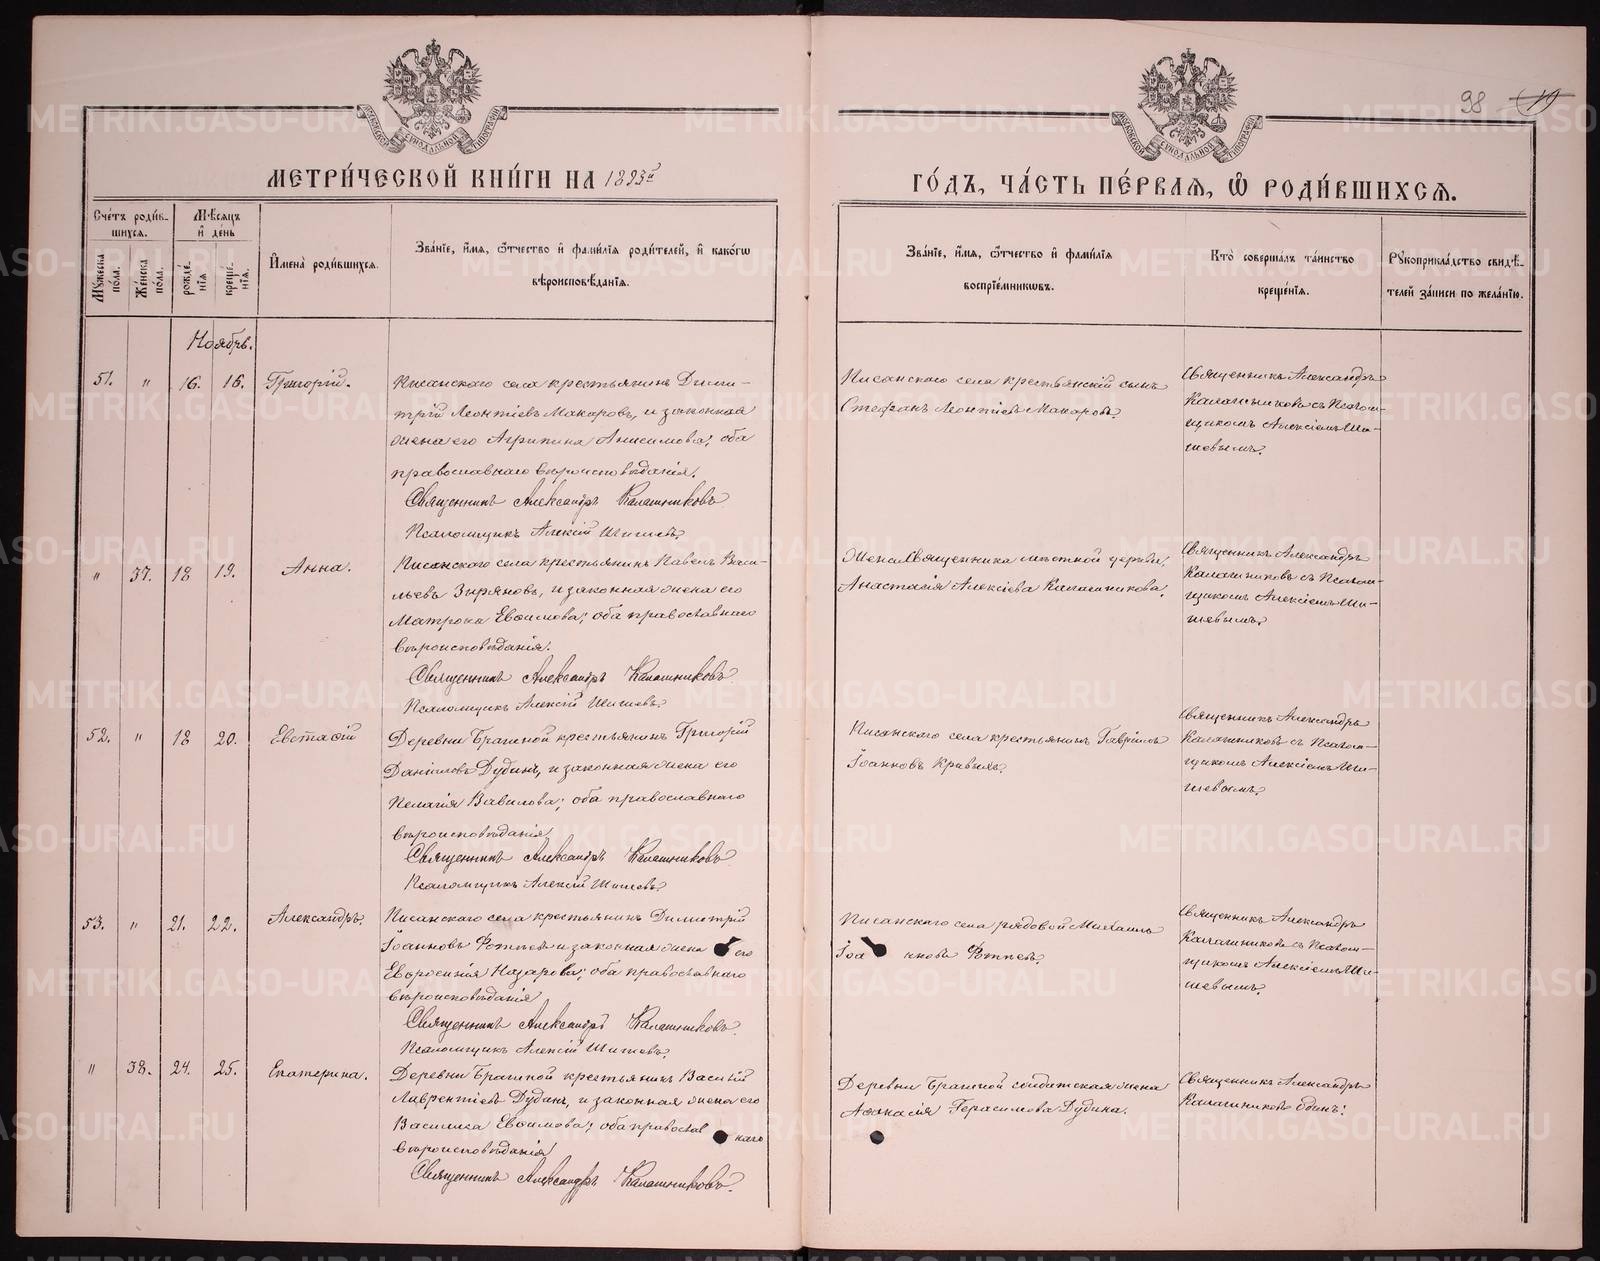 98 19
МОСКОВСКОЙ СУНОДАЛЬНОЙ ТИПОГРАФІИ
МОСКОВСКОЙ СУНОДАЛЬНОЙ ТИПОГРАФІИ
МЕТРИ́ЧЕСКОЙ КНИ́ГИ НА 1893й
ГО́ДЪ, ЧА́СТЬ ПЕ́РВАЯ, Ѽ РОДИ́ВШИХСЯ.
Сче́тъ роди́в-
шихся.
Мꙋжеска по́ла.
Же́нска по́ла.
Мѣ́сяцъ
и҆ де́нь
рожде́-
нїя
креще́-
нїя.
И҆мена̀ роди́вшихся.
Зва́нїе, и҆́мя, ѻ҆́тчество и҆ фами́лїя роди́телей, и҆ како́гѡ
вѣроисповѣ́данїя.
Зва́нїе, и҆́мя, ѻ҆́тчество и҆ фами́лїя
воспрїе́мникѡвъ.
Кто̀ соверша́лъ та́инство
креще́нїя.
Рꙋкоприкла́дство свидѣ́-
телей за́писи по жела́нїю.
Ноябрь.
51. " 16. 16. Григорій.
Писанскаго села крестьянинъ Дими-
трій Леонтіевъ Макаровъ, и законная
жена его Агрипина Анисимова; оба
православнаго вѣроисповѣданія.
Священникъ Александръ Калашниковъ
Псаломщикъ Алексій Шишевъ.
Писанскаго села крестьянскій сынъ
Стефанъ Леонтіевъ Макаровъ.
Священникъ Александръ
Калашниковъ съ Псалом-
щикомъ Алексіемъ Ши-
шевымъ.
" 37. 18 19. Анна.
Писанскаго села крестьянинъ Павелъ Васи-
льевъ Зыряновъ, и законная жена его
Матрона Евѳимова; оба православнаго
вѣроисповѣданія.
Священникъ Александръ Калашниковъ
Псаломщикъ Алексій Шишевъ.
Жена Священника мѣстной церкви,
Анастасія Алексіева Калашникова.
Священникъ Александръ
Калашниковъ съ Псалом-
щикомъ Алексіемъ Ши-
шевымъ.
52. " 18 20. Евстаѳій
Деревни Брагиной крестьянинъ Григорій
Даніиловъ Дудинъ, и законная жена его
Пелагія Вавилова; оба православнаго
вѣроисповѣданія
Священникъ Александръ Калашниковъ
Псаломщикъ Алексій Шишевъ.
Писанскаго села крестьянинъ Гавріилъ
Іоанновъ Кривыхъ.
Священникъ Александръ
Калашниковъ съ Псалом-
щикомъ Алексіемъ Ши-
шевымъ.
53. " 21. 22. Александръ.
Писанскаго села крестьянинъ Димитрій
Іоанновъ и законная жена его
Евѳросинія Назарова; оба православнаго
вѣроисповѣданія
Священникъ Александръ Калашниковъ.
Псаломщикъ Алексій Шишевъ.
Писанскаго села рядовой Михаилъ
Іоанновъ
Священникъ Александръ
Калашниковъ съ Псалом-
щикомъ Алексіемъ Ши-
шевымъ.
" 38. 24. 25. Екатерина.
Деревни Брагиной крестьянинъ Василій
Лаврентіевъ Дудинъ, и законная жена его
Василиса Евѳимова; оба православнаго
вѣроисповѣданія
Священникъ Александръ Калашниковъ.
Деревни Брагиной солдатская жена
Аѳанасія Герасимова Дудина.
Священникъ Александръ
Калашниковъ одинъ.
METRIKI.GASO-URAL.RU